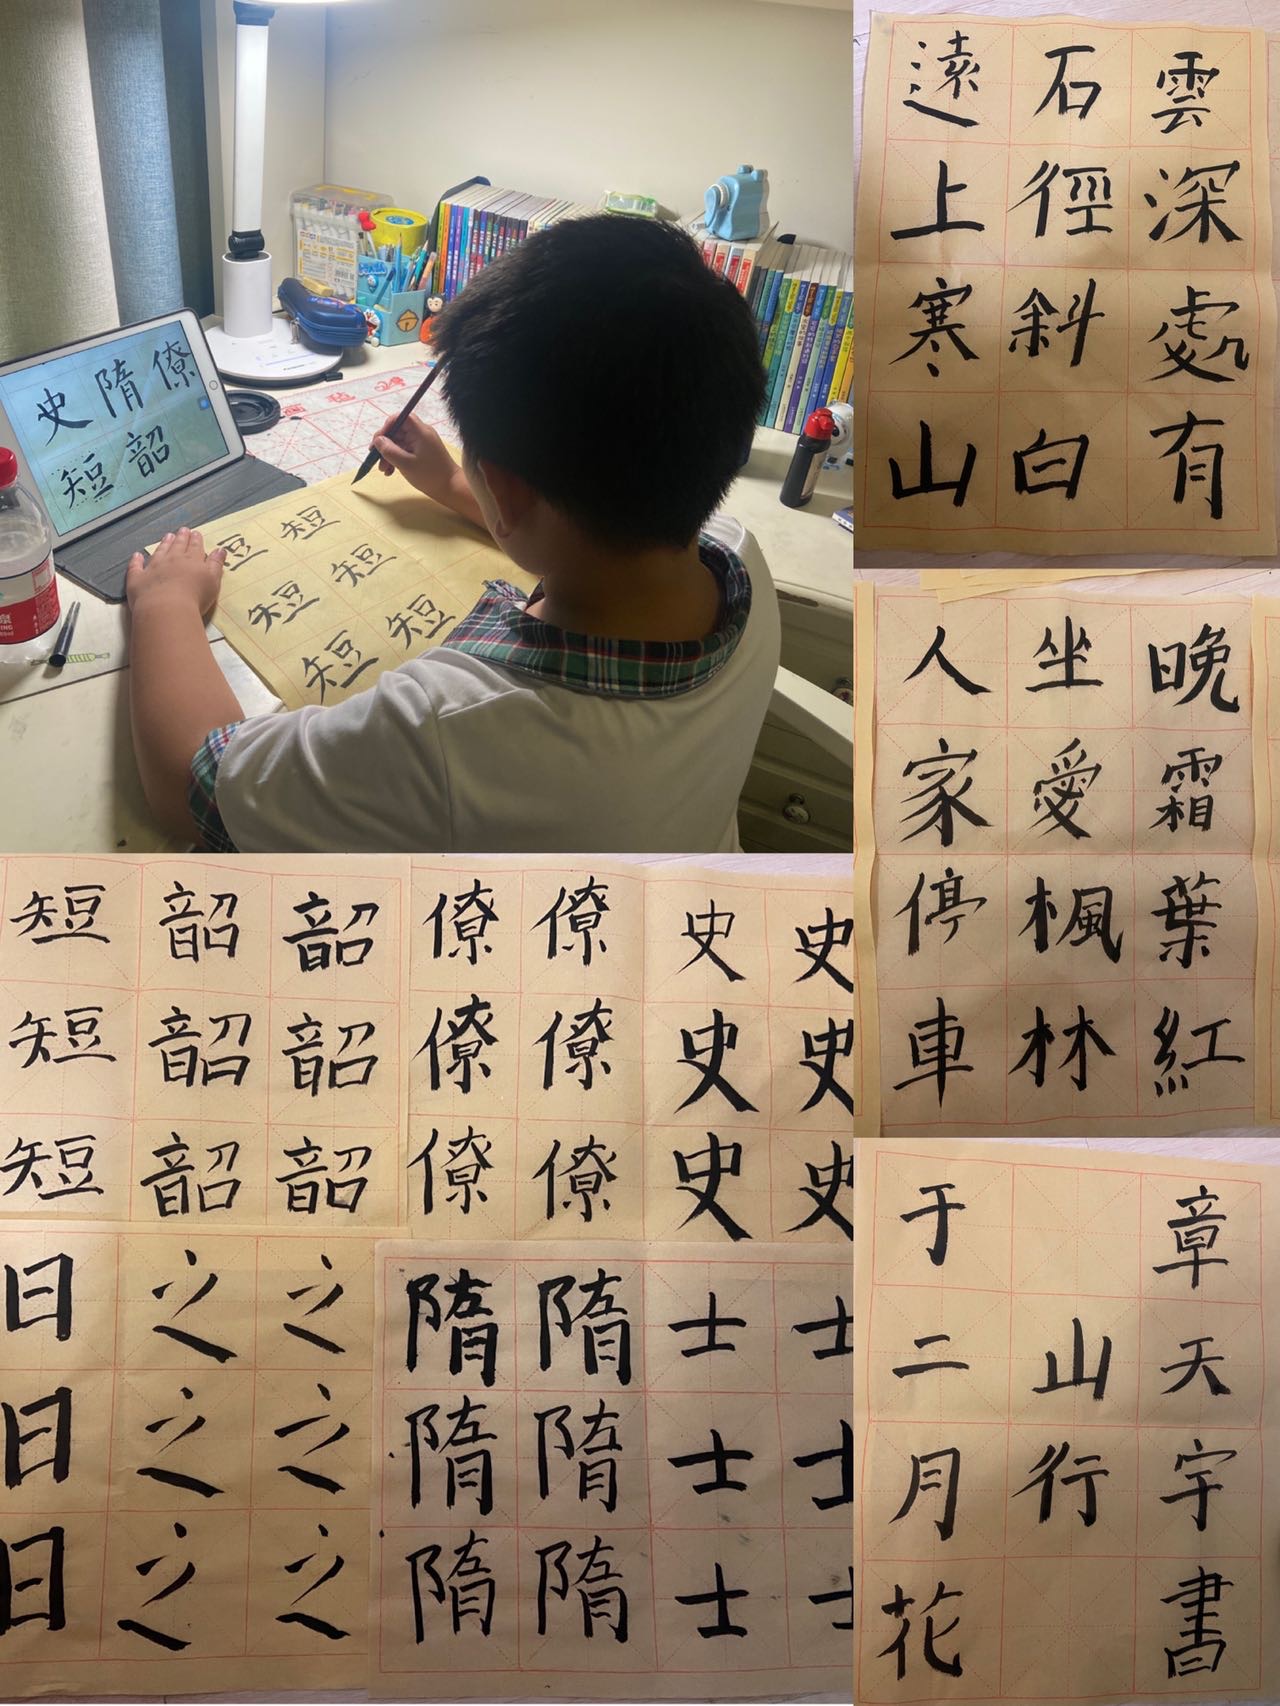 史隋僚
短韶
短短
短短
短短
遠上寒山
石徑斜白
雲深處有
人家停車
坐愛楓林
晚霜葉紅
于二月花
山行
章天宇書
短韶韶
短韶韶
短韶韶
僚僚史史
僚僚史史
僚僚史史
日之之
日之之
日之之
隋隋士士
隋隋士士
隋隋士士